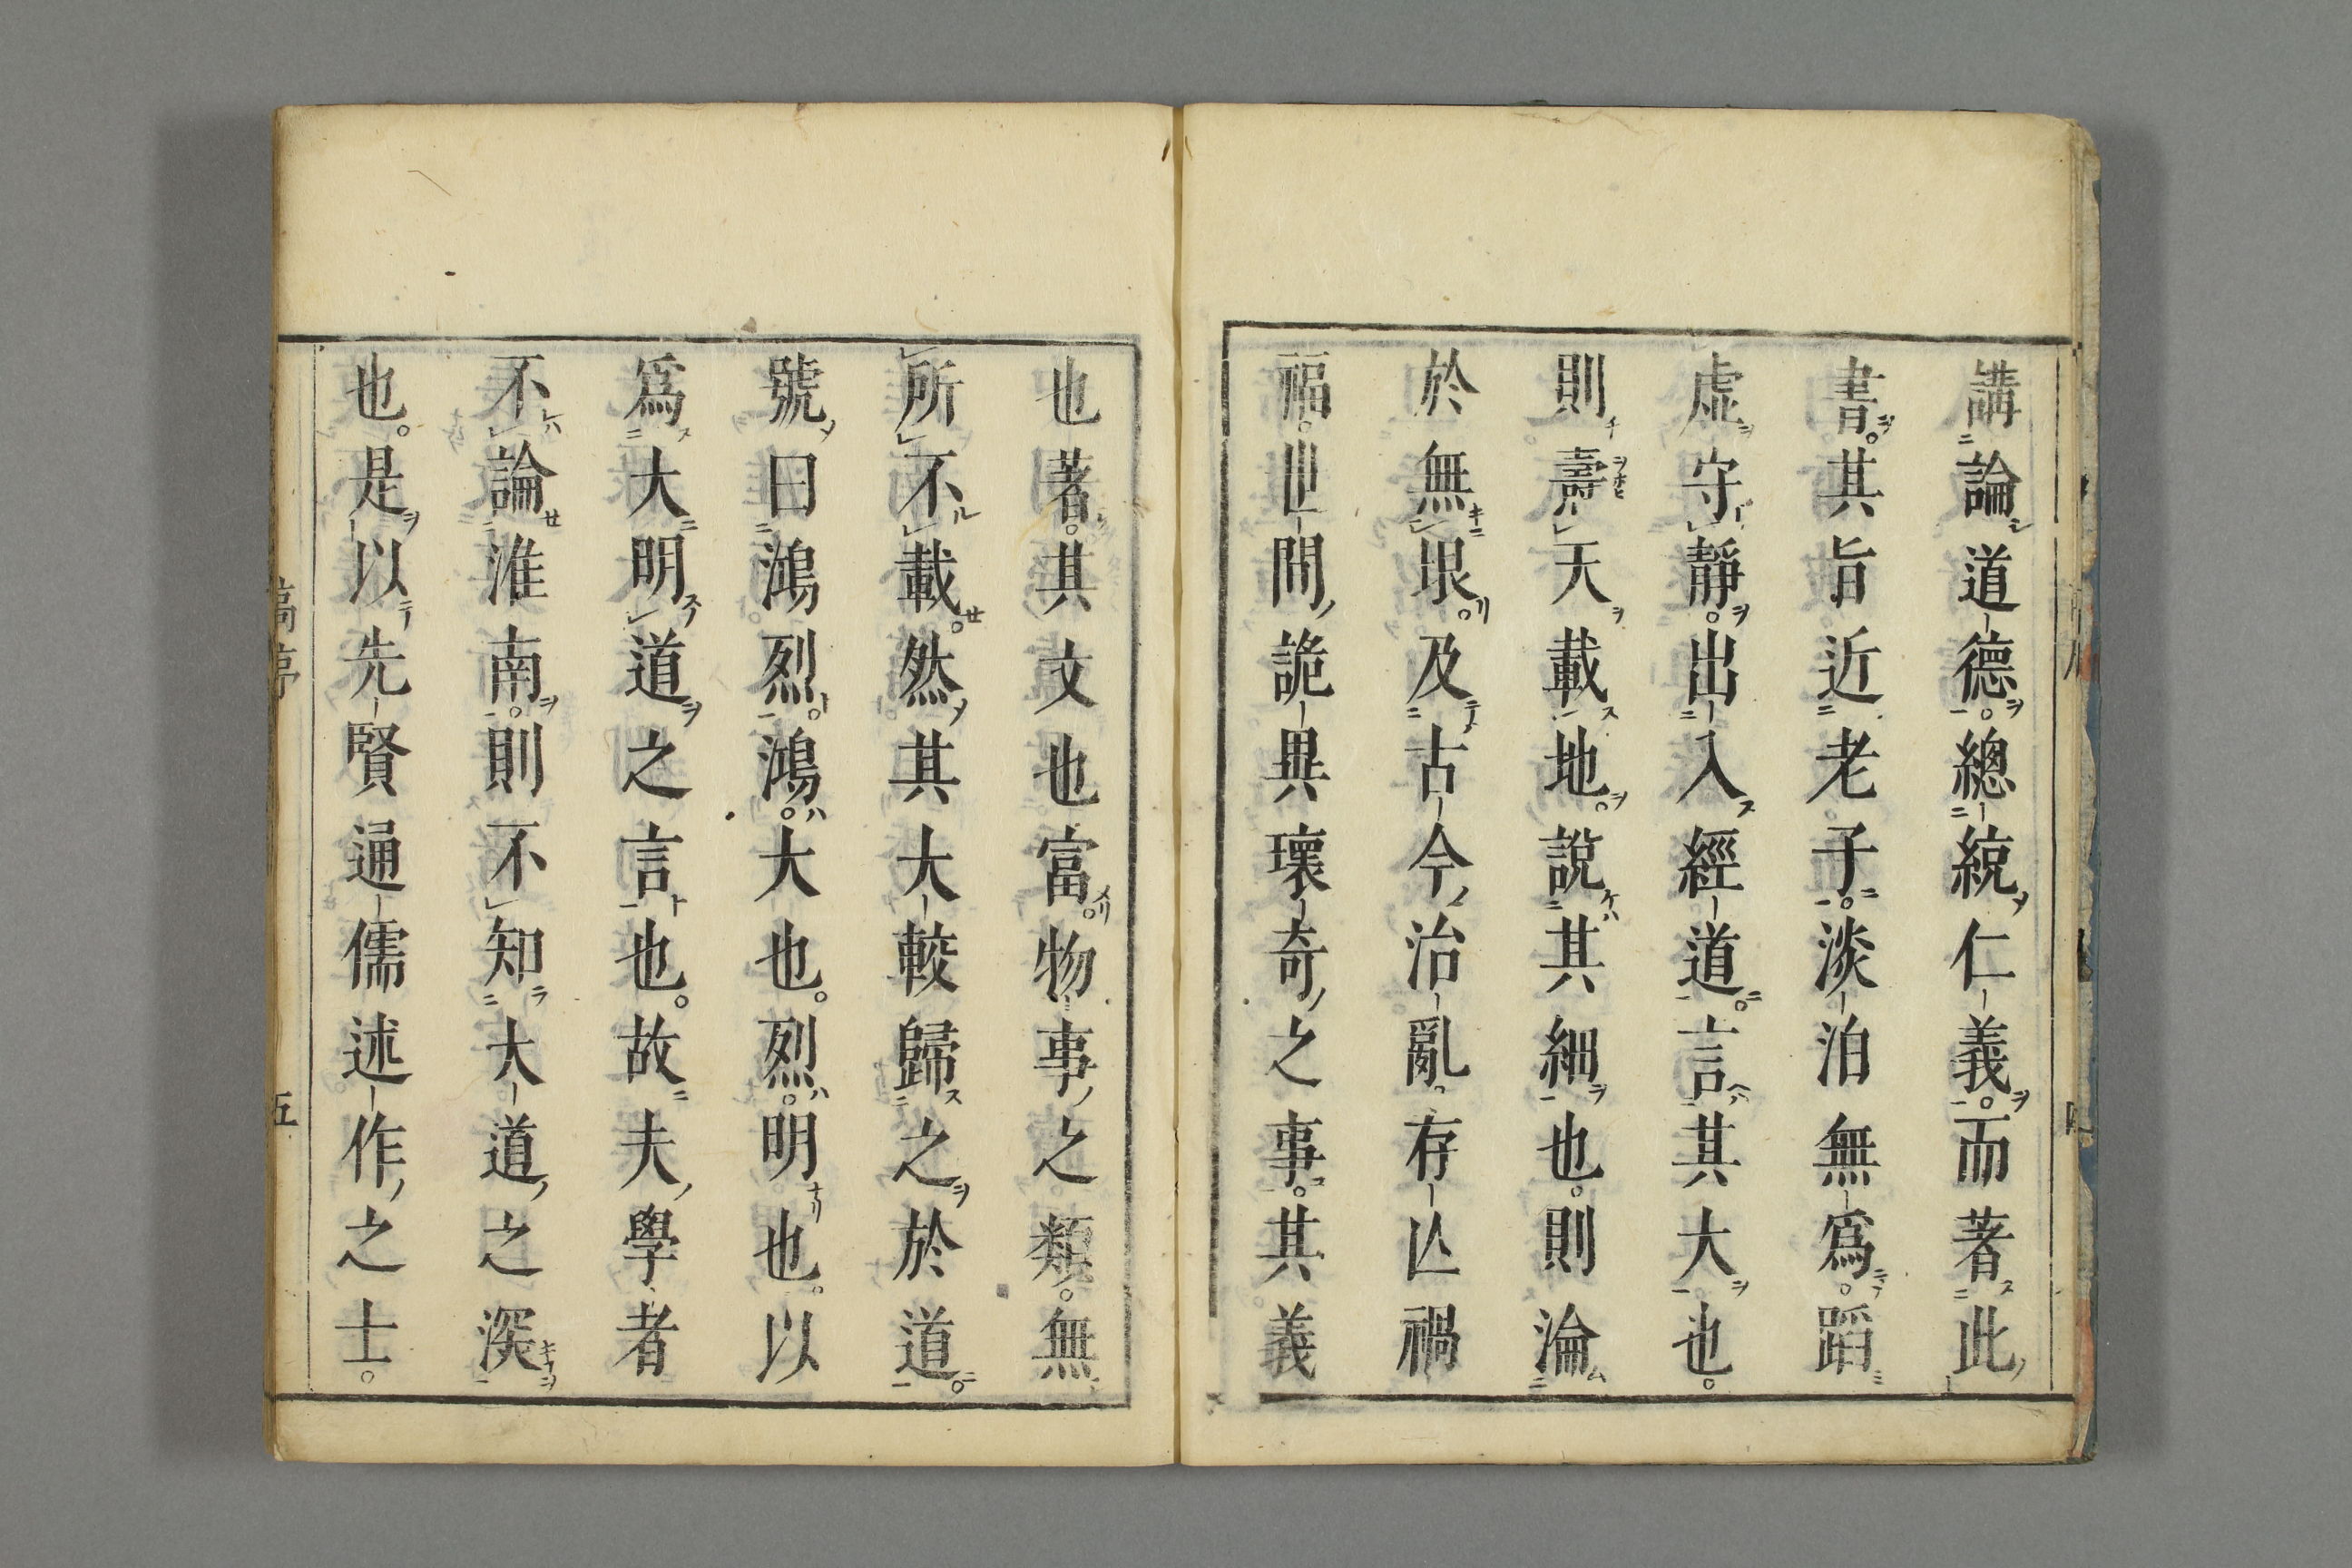 講論道德。總統仁義。而著此
書。其旨近老子。淡泊無爲。蹈
虛守靜。出入經道。言其大也。
則燾天載地。說其細也。則淪
於無垠。及古今治亂。存亾禍
福。世間詭異瓌奇之事。其義
也著。其文也富。物事之類。無
所不載。然其大較歸之於道。
號曰鴻烈。鴻。大也。烈。明也。以
爲大明道之言也。故夫學者
不論淮南。則不知大道之深
也。是以先賢通儒述作之士。
五